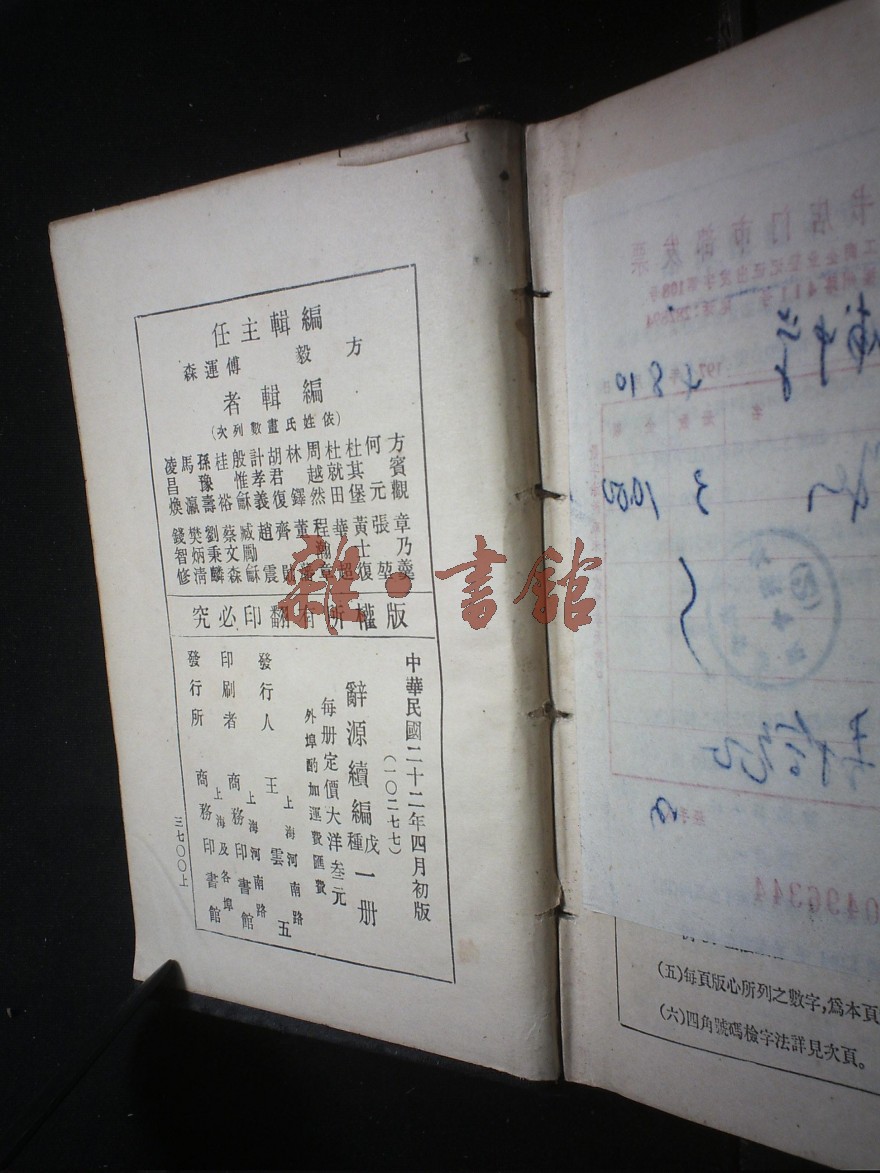 編輯主任
方毅 傅運森
編輯者
(依姓氏畫數列次)
方賓觀 章乃羹
何元 張堃
杜其堡 黃士復
杜就田 華超
周越然 程瀚章
林鐸
胡君復 齊
計孝義 趙震
殷惟龢 臧勵龢
桂裕 蔡文森
孫豫壽 劉秉麟
馬瀛 樊炳清
凌昌煥 錢智修
版權所有翻印必究
中華民國二十二年四月初版
(一〇二七七)
辭源續編戊種一册
每册定價大洋叁元
外埠酌加運費匯費
上海河南路
發行人 王雲五
上海河南路
印刷者 商務印書館
上海及各埠
發行所 商務印書館
三七〇〇上
雜·書館
书店门市部发票
197
4 8 10
3 1000
0496344
(五)每頁版心所列之數字,爲本頁
(六)四角號碼檢字法詳見次頁。